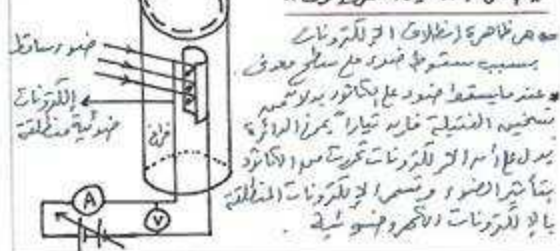 هي ظاهرة انطلاق الإلكترونات
بسبب سقوط ضوء على سطح معدني
عندما يسقط ضوء على الكاثود بدلا من
تسخين الفتيلة فإن تياراً يمر في الدائرة
يدل على أن الإلكترونات تحررت من الكاثود
بتأثير الضوء وتسمى الإلكترونات المنطلقة
بالإلكترونات الكهروضوئية
ضوء ساقط
إلكترونات
ضوئية منطلقة
فراغ
A
V